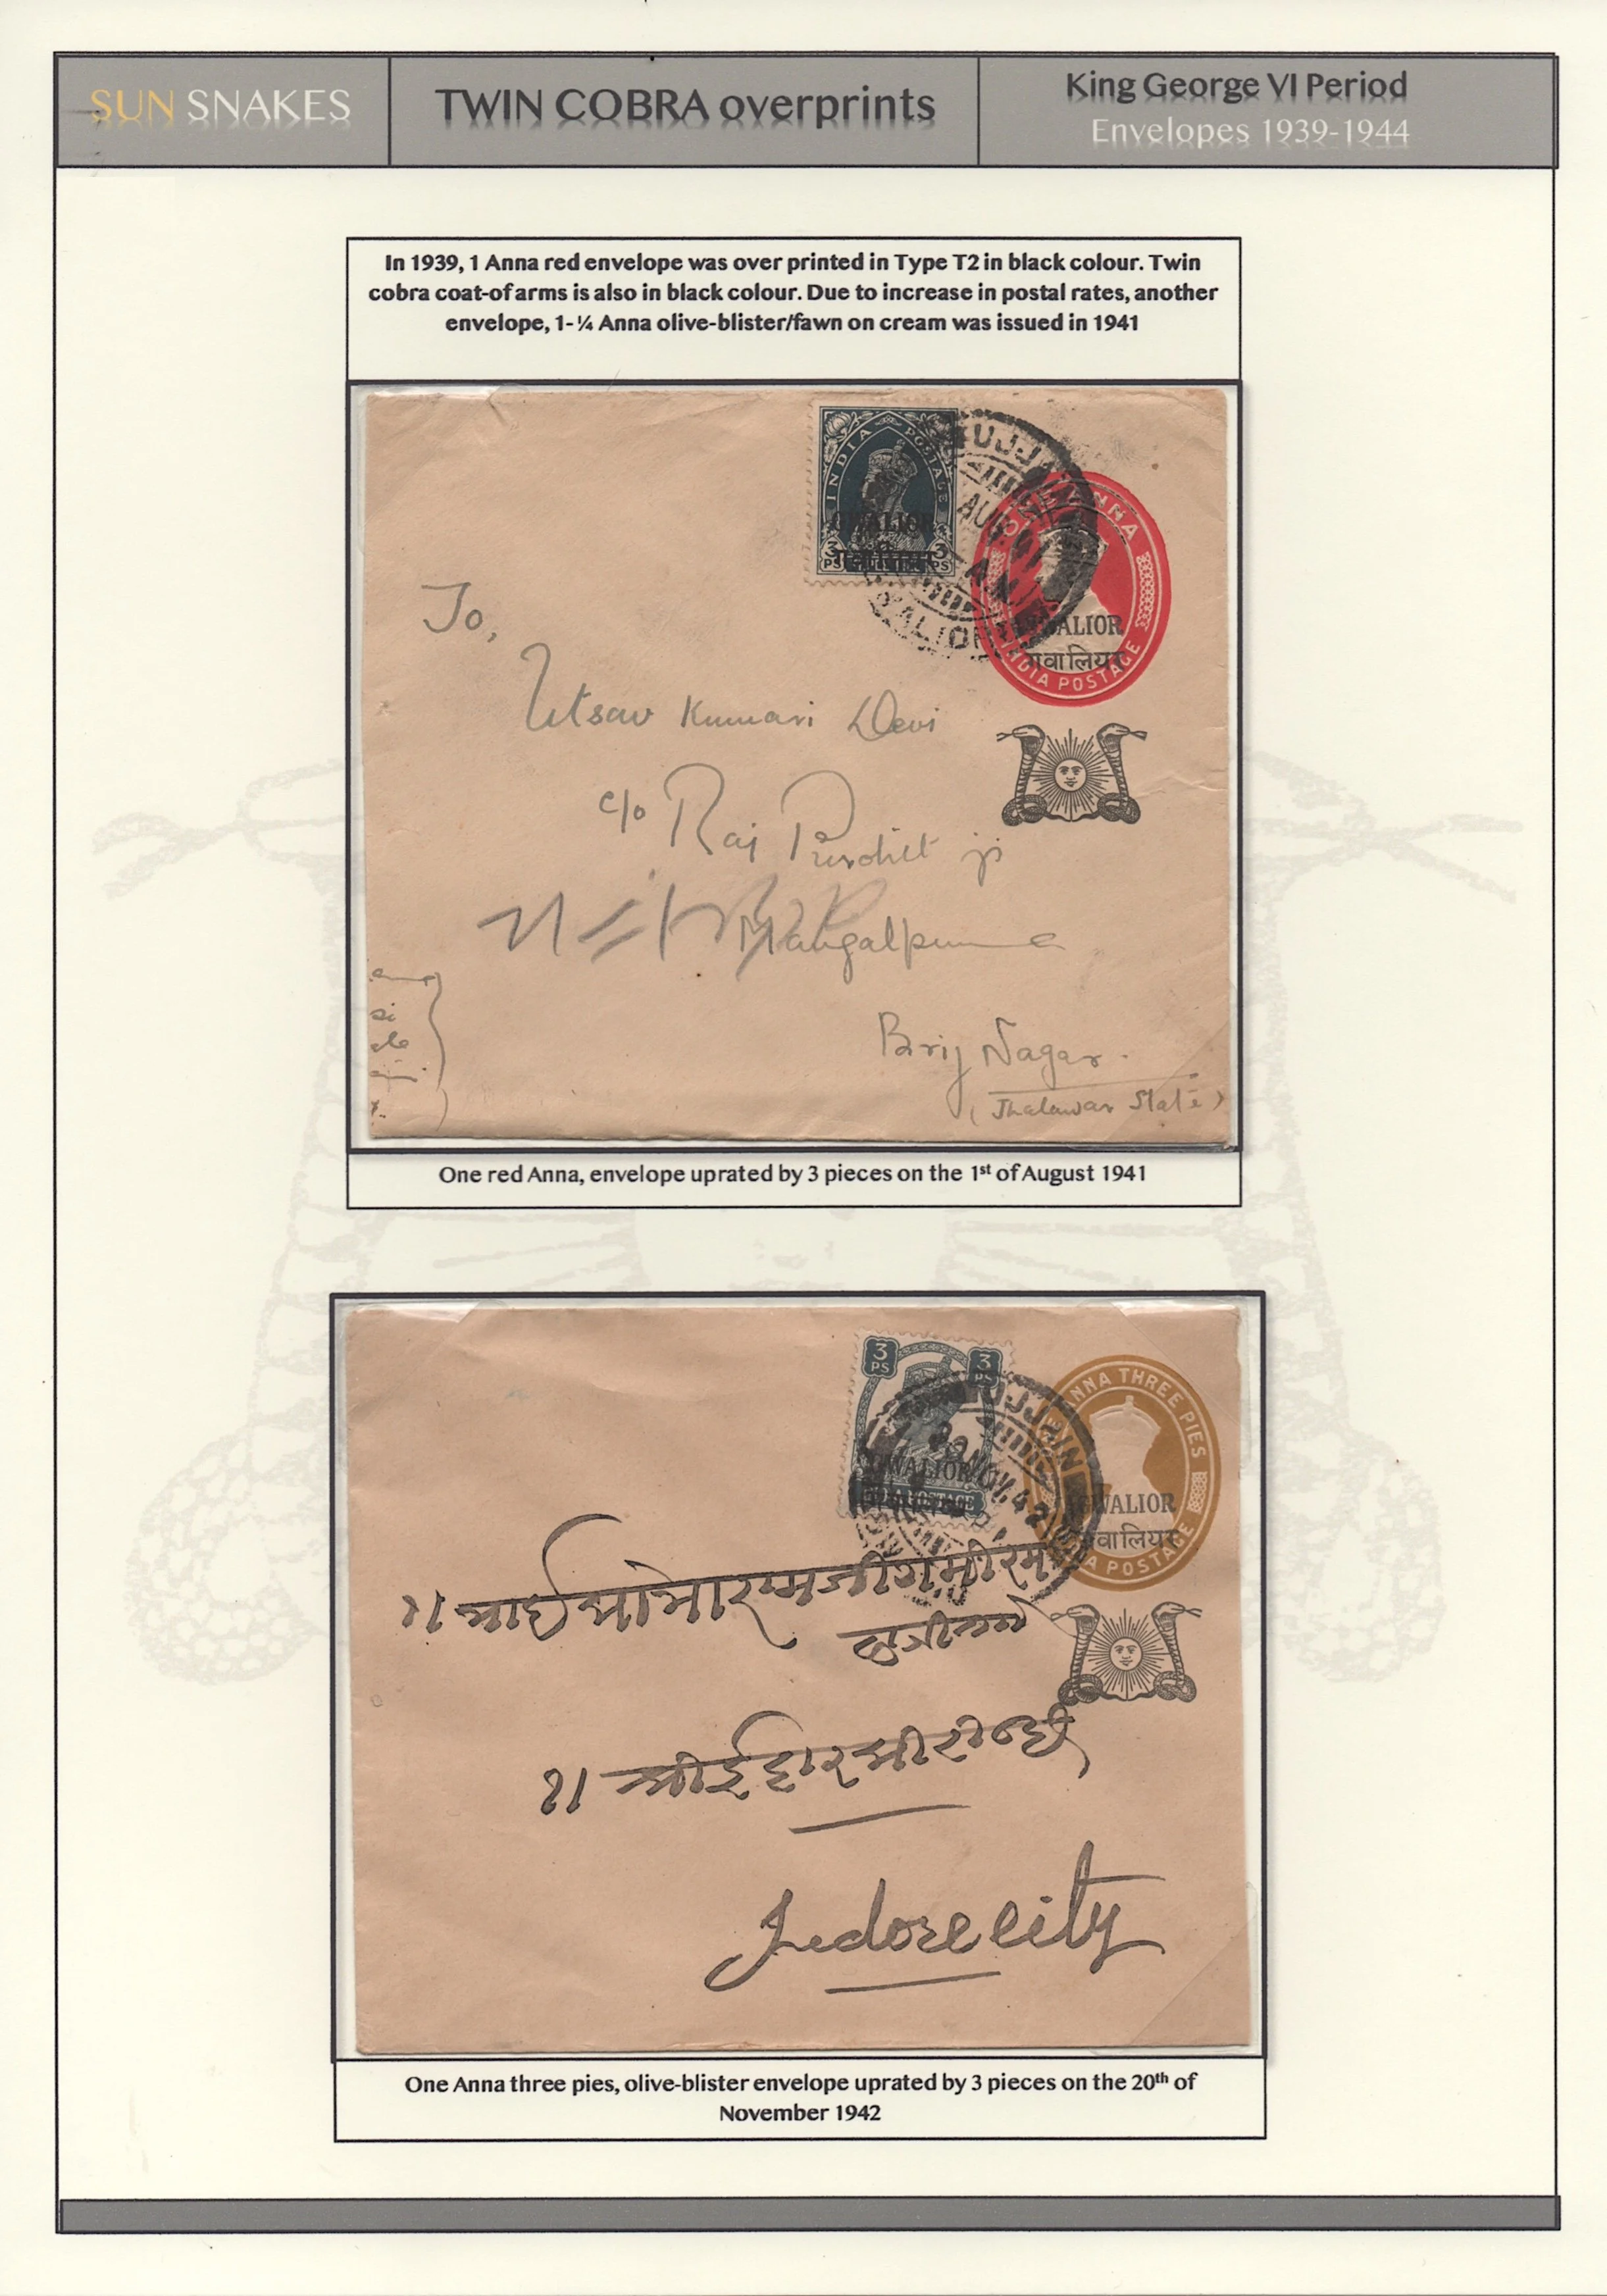 SUN SNAKES
TWIN COBRA overprints
King George VI Period
Envelopes 1939-1944
In 1939, 1 Anna red envelope was over printed in Type T2 in black colour. Twin
cobra coat-of arms is also in black colour. Due to increase in postal rates, another
envelope, 1-¼ Anna olive-blister/fawn on cream was issued in 1941
INDIA POSTAGE
GWALIOR
3 PS 3 PS
UJJ
AUG
ANNA
GWALIOR
ग्वालियर
INDIA POSTAGE
To,
Utsav Kumari Devi
c/o Raj Purohit ji
Mangalpura
Brij Nagar.
(Jhalawar State)
One red Anna, envelope uprated by 3 pieces on the 1st of August 1941
3 PS 3 PS
GWALIOR
INDIA POSTAGE
UJJAIN
NOV. 42
ANNA THREE PIES
GWALIOR
ग्वालियर
POSTAGE
Indore city
One Anna three pies, olive-blister envelope uprated by 3 pieces on the 20th of
November 1942